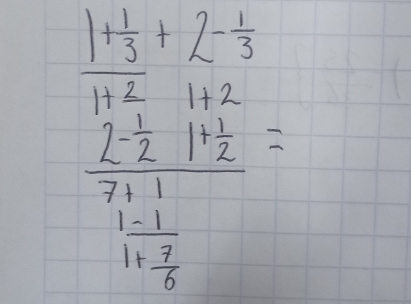 1+1/3 + 2-1/3
1+2 1+2
2-1/2 1+1/2 =
7+1
1-1
1+7/6